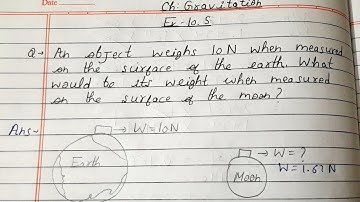 Date
Ch: Gravitation
Ex-10.5
Q→ An object weighs 10N when measured
on the surface of the earth. What
would be its weight when measured
on the surface of the moon?
Ans→
→ W=10N
Earth
→ W=?
W=1.67N
Moon